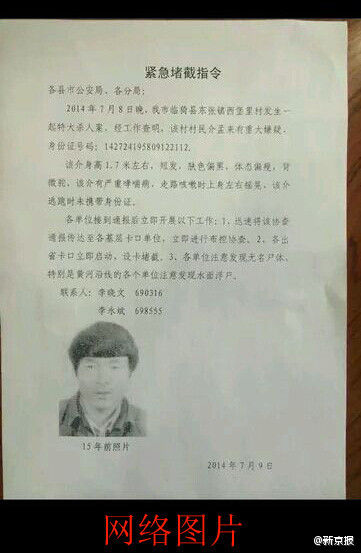 紧急堵截指令
各县市公安局、各分局：
2014年7月8日晚，我市临猗县东张镇西堡里村发生一
起特大杀人案，经工作查明，该村村民介孟来有重大嫌疑，
身份证号码：142724195809122112。
该介身高1.7米左右，短发，肤色偏黑，体态偏瘦，背
微驼，该介有严重哮喘病，走路咳嗽时上身左右摇晃，该介
逃跑时未携带身份证。
各单位接到通报后立即开展以下工作：1、迅速将该协查
通报传达至各基层卡口单位，立即进行布控协查。2、各出
省卡口立即启动，设卡堵截。3、各单位注意发现无名尸体，
特别是黄河沿线的各个单位注意发现水面浮尸。
联系人：李晓文 690316
李永斌 698555
15年前照片
2014年7月9日
网络图片
@新京报